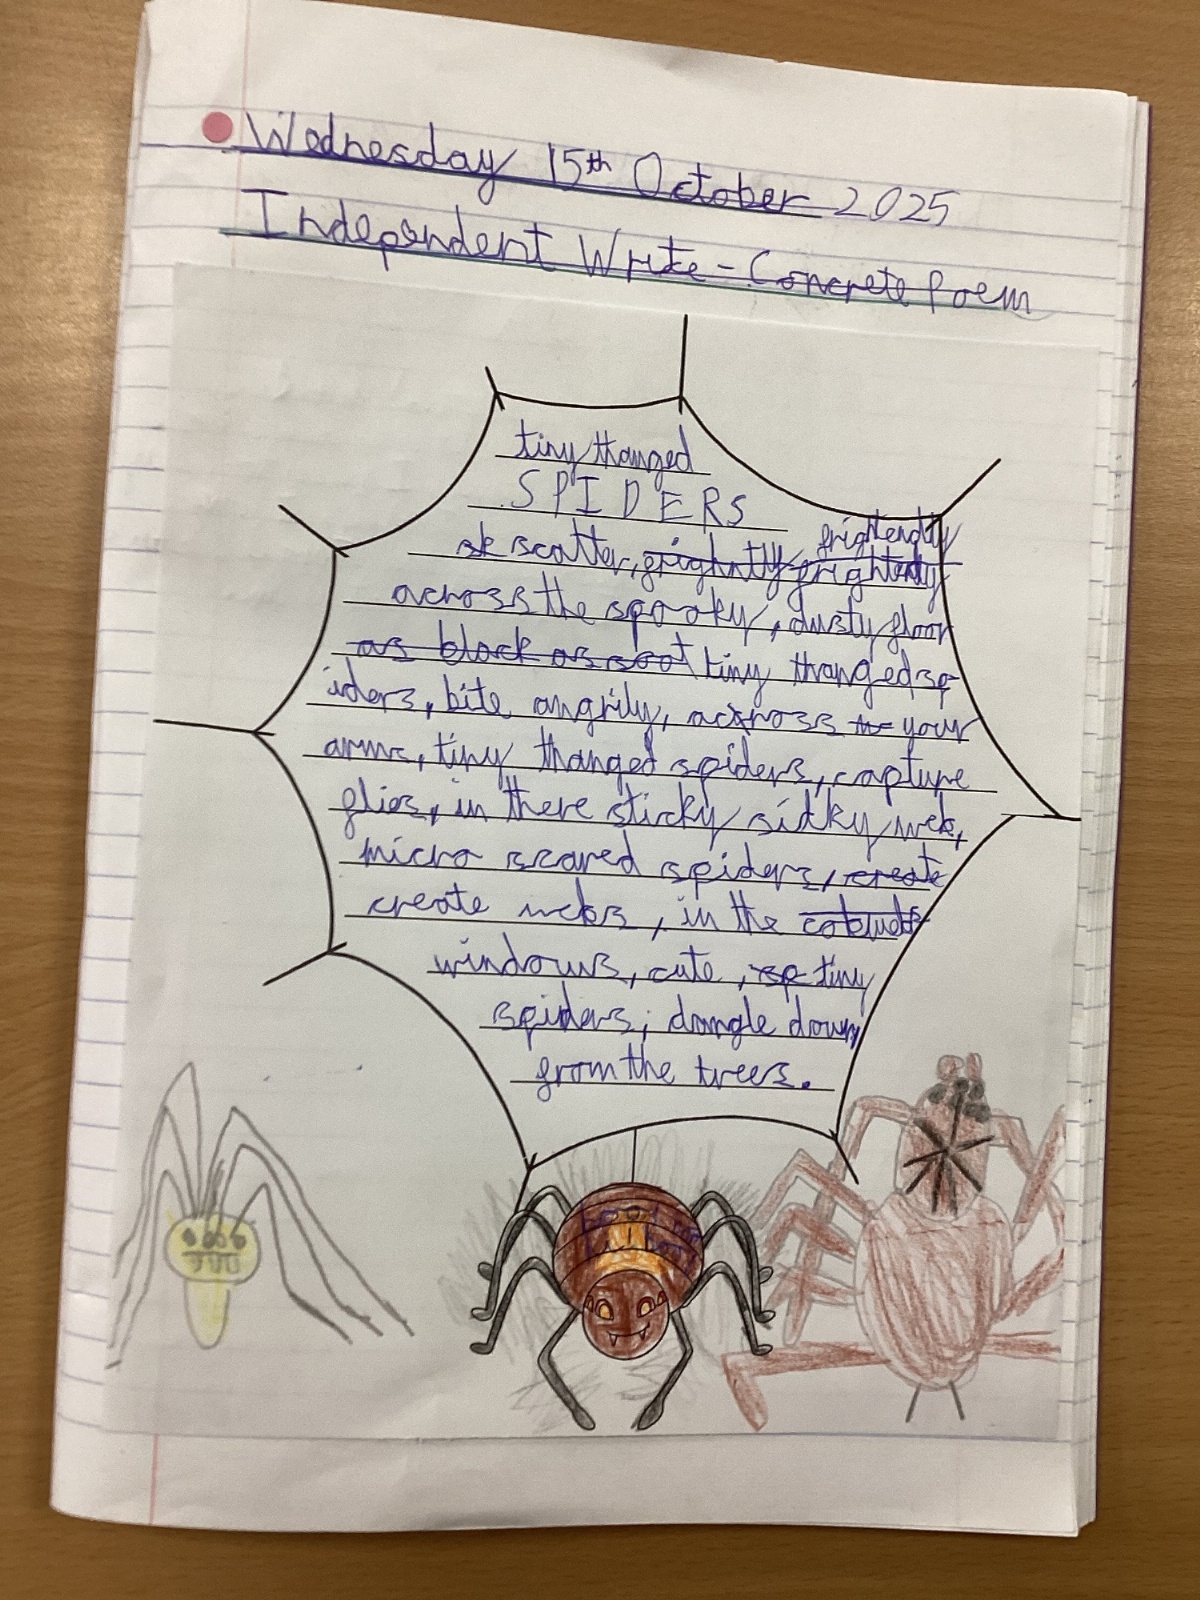 Wednesday 15th October 2025
Independent Write - Concrete Poem
tiny thanged
SPIDERS
frightendly
sk scatter, frightly frightenly
across the spooky, dusty floor
as black as soot tiny thanged sp
iders, bite angrily, across the your
arms, tiny thanged spiders, capture
flies, in there sticky silky web,
micro scared spiders, create
create webs, in the
windows, cute, sp tiny
spiders, dangle down
from the trees.